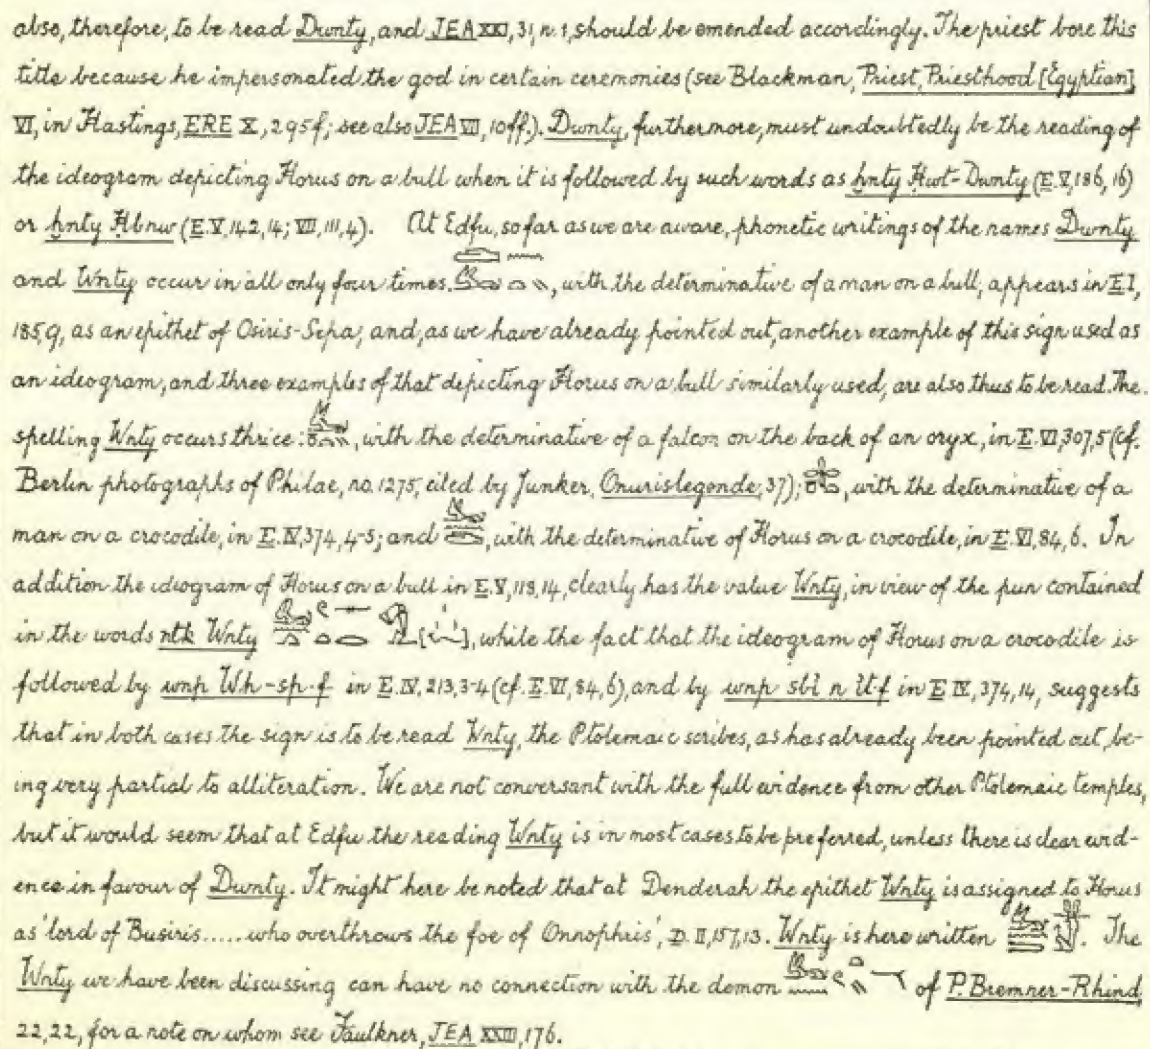 also, therefore, to be read Dwnty, and JEA XXI, 31, n. 1, should be emended accordingly. The priest bore this
title because he impersonated the god in certain ceremonies (see Blackman, Priest, Priesthood [Egyptian]
VI, in Hastings, ERE X, 295f; see also JEA VII, 10ff.). Dwnty, furthermore, must undoubtedly be the reading of
the ideogram depicting Horus on a bull when it is followed by such words as ḫnty Ḥwt-Dwnty (E. V, 186, 16)
or ḫnty Ḥbnw (E. V, 142, 14; VII, 111, 4). At Edfu, so far as we are aware, phonetic writings of the names Dwnty
and Wnty occur in all only four times. , with the determinative of a man on a bull, appears in E I,
185, 9, as an epithet of Osiris-Sepa; and, as we have already pointed out, another example of this sign used as
an ideogram, and three examples of that depicting Horus on a bull similarly used, are also thus to be read. The
spelling Wnty occurs thrice: , with the determinative of a falcon on the back of an oryx, in E. VI, 307, 5 (cf.
Berlin photographs of Philae, no. 1275, cited by Junker, Onurislegende, 37); , with the determinative of a
man on a crocodile, in E. IV, 374, 4-5; and , with the determinative of Horus on a crocodile, in E. VI, 84, 6. In
addition the ideogram of Horus on a bull in E. V, 118, 14, clearly has the value Wnty, in view of the pun contained
in the words ntk Wnty , while the fact that the ideogram of Horus on a crocodile is
followed by wnp Wh-sp.f in E. IV, 213, 3-4 (cf. E. VI, 84, 6), and by wnp sbỉ n ỉt.f in E IV, 374, 14, suggests
that in both cases the sign is to be read Wnty, the Ptolemaic scribes, as has already been pointed out, be-
ing very partial to alliteration. We are not conversant with the full evidence from other Ptolemaic temples,
but it would seem that at Edfu the reading Wnty is in most cases to be preferred, unless there is clear evid-
ence in favour of Dwnty. It might here be noted that at Denderah the epithet Wnty is assigned to Horus
as 'lord of Busiris..... who overthrows the foe of Onnophris', D. II, 157, 13. Wnty is here written . The
Wnty we have been discussing can have no connection with the demon of P. Bremner-Rhind,
22, 22, for a note on whom see Faulkner, JEA XXIII, 176.